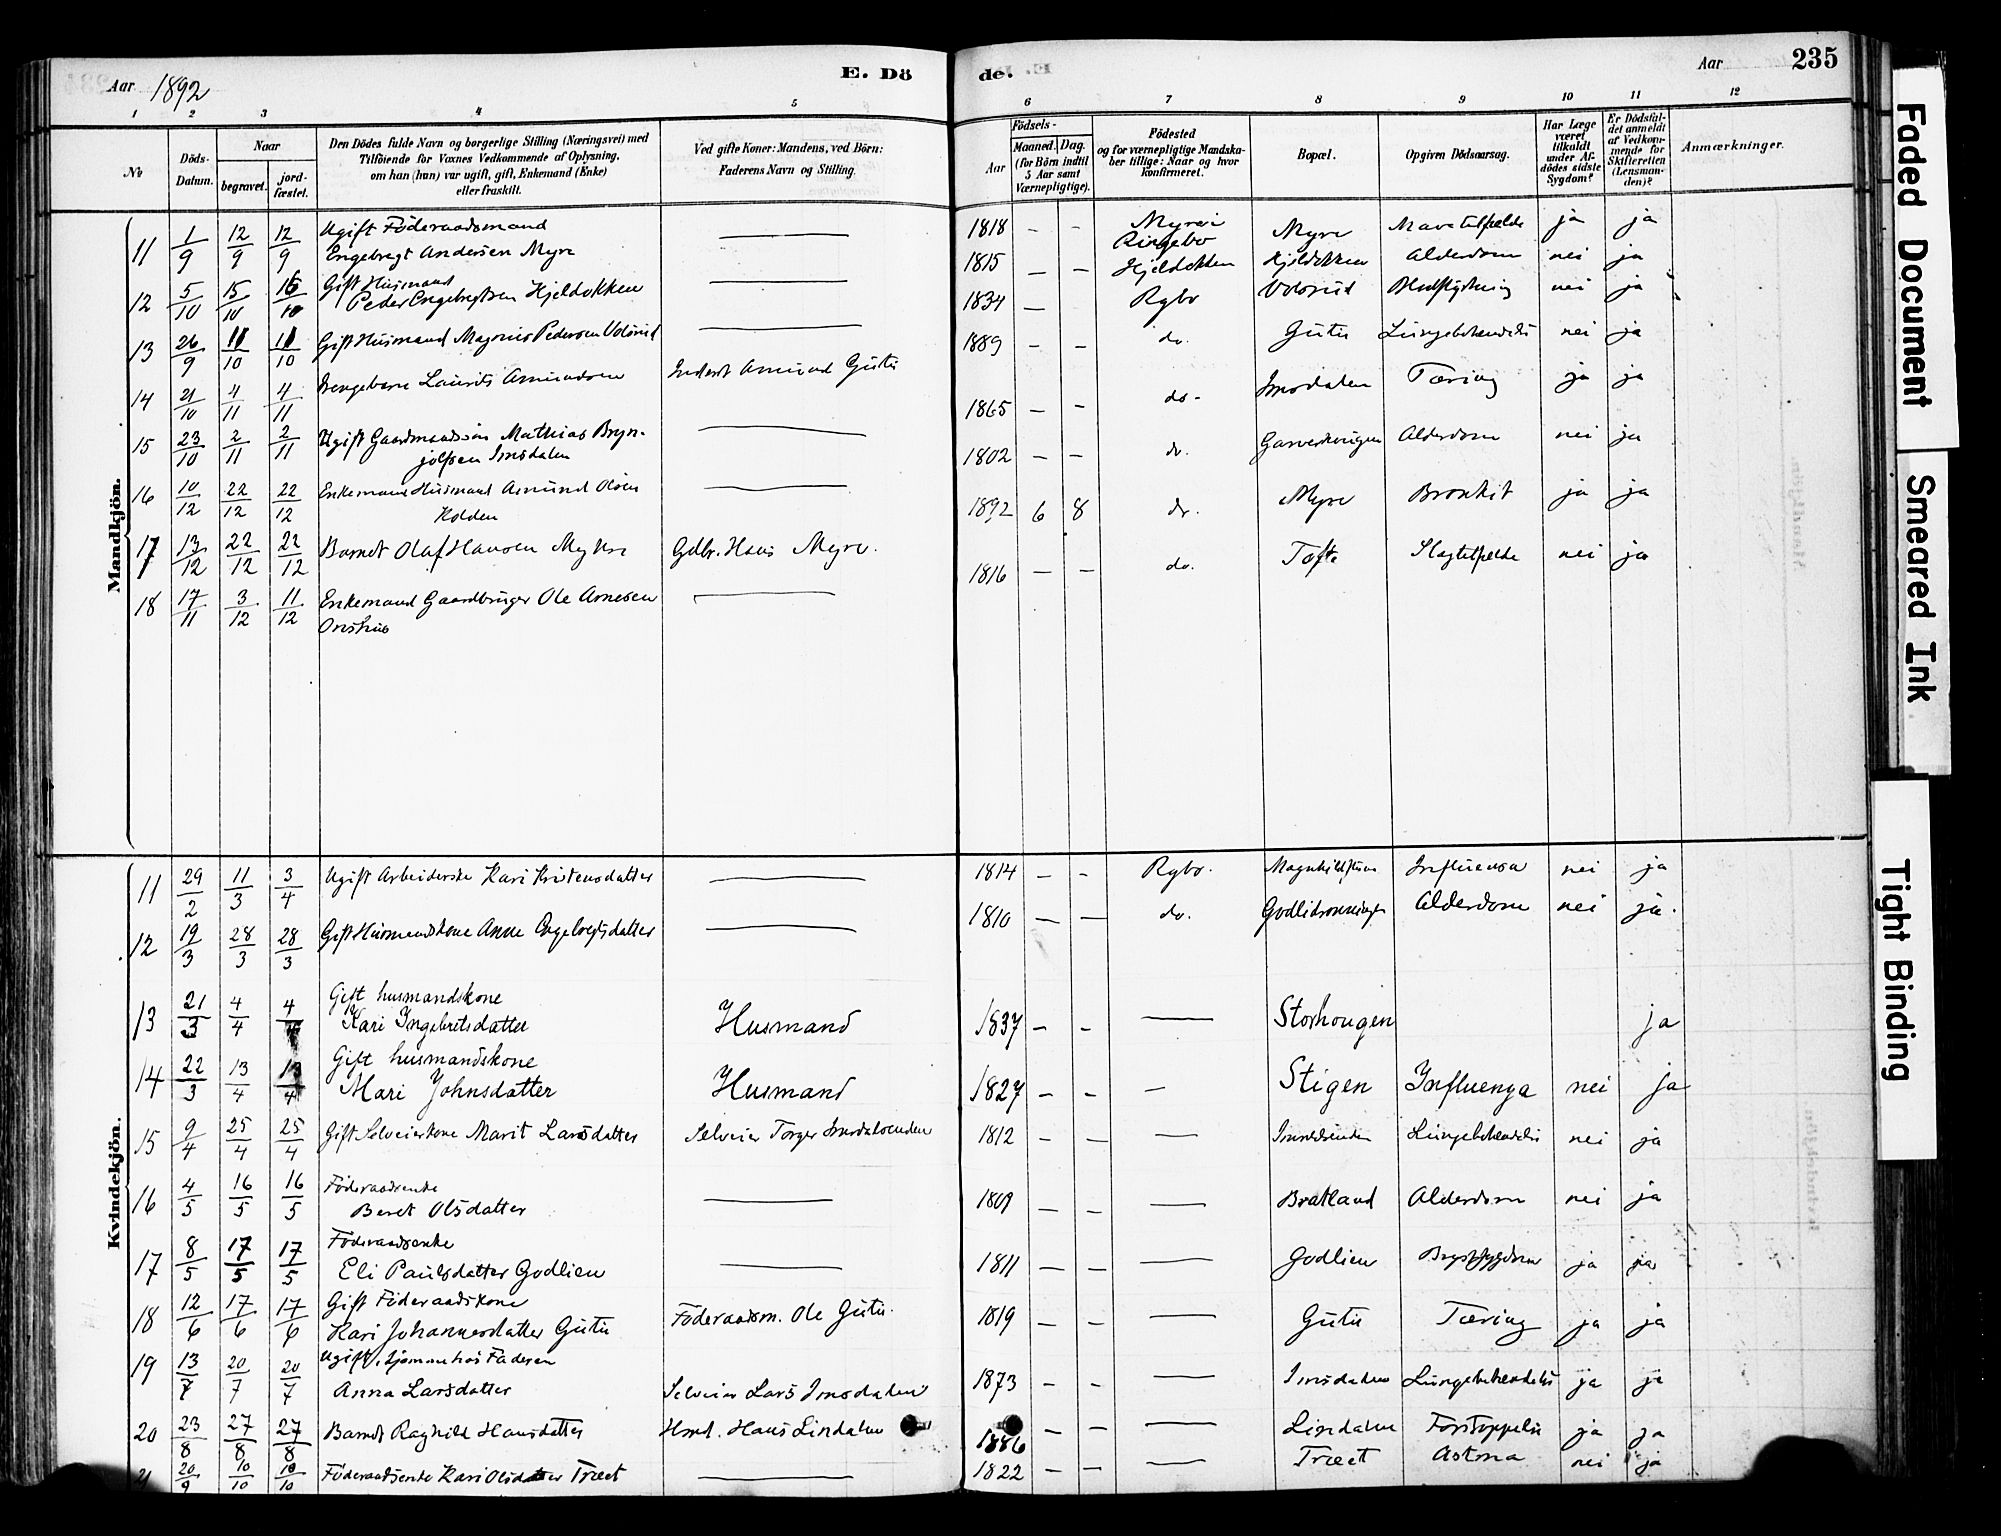 Aar 1892
E. Dö
de.
Aar
235
1 2 3 4 5
6 7 8 9 10 11 12
№
Döds-Datum.
Naar
begravet.
jord-fæstet.
Den Dödes fulde Navn og borgerlige Stilling (Næringsvei) med
Tilföiende for Voxnes Vedkommende af Oplysning,
om han (hun) var ugift, gift, Enkemand (Enke)
eller fraskilt.
Ved gifte Koner: Mandens, ved Börn:
Faderens Navn og Stilling.
Födsels-
Aar
Maaned. Dag.
(for Börn indtil
5 Aar samt
Værnepligtige).
Födested
og for værnepligtige Mandska-
ber tillige: Naar og hvor
konfirmeret.
Bopæl.
Opgiven Dödsaarsag.
Har Læge
været
tilkaldt
under Af-
dödes sidste
Sygdom?
Er Dödsfal-
det anmeldt
af Vedkom-
mende for
Skifteretten
(Lensman-
den)?
Anmærkninger.
Mandkjön.
11 1/9 12/9 12/9 Ugift Föderaadsmand
Engebregt Andersen Myre — 1818 - - Myre i Ringebo Myre Mavetilfælde ja ja
12 5/10 15/10 16/10 Gift Husmand
Peder Engebregtsen Kjeldokken — 1815 - - Kjeldokken Kjeldokken Alderdom nei ja
13 26/9 11/10 11/10 Gift Husmand Magnus Pedersen Volsrud — 1834 - Rgbo Volsrud Blodstyrtning nei ja
14 21/10 4/11 4/11 Drengebarn Laurits Amundsen Inderst Amund Gutu 1889 - - do. Gutu Lungebetændelse nei ja
15 23/10 2/11 2/11 Ugift Gaardmandssön Mathias Bryn-
jolfsen Imsdalen — 1865 - - do - Imsdalen Tæring ja ja
16 10/12 22/12 22/12 Enkemand Husmand Amund Olsen
Kolden — 1802 - - do. Garverhougen Alderdom nei ja
17 13/12 22/12 22/12 Barnet Olaf Hansen Myhre Gdbr. Hans Myre. 1892 6 8 do. Myre Bronkit ja ja
18 17/11 3/12 11/12 Enkemand Gaardbruger Ole Arnesen
Onshus — 1816 - - do. Tofte Slagtilfælde nei ja
Kvindekjön.
11 29/2 11/3 3/4 Ugift Arbeiderske Kari Kristensdatter — 1814 - - Rgbo. Influensa nei ja
12 19/3 28/3 28/3 Gift Husmandskone Anne Engebregtsdatter — 1810 - - do. Godlidsrønningen Alderdom nei ja.
13 21/3 4/4 4/4 Gift husmandskone
Kari Ingebretsdatter Husmand 1837 - - — Storhougen ja
14 22/3 13/4 13/4 Gift husmandskone
Mari Johnsdatter Husmand 1827 - - - Stigen Influenza nei ja
15 9/4 25/4 25/4 Gift Selveierkone Marit Larsdatter Selveier Torger Imsdalsenden 1812 - - — Lungebetændelse nei ja
16 4/5 16/5 16/5 Föderaadsenke
Beret Olsdatter — 1809 - - — Bratland Alderdom nei ja
17 8/5 17/5 17/5 Föderaadsenke
Eli Paulsdatter Godlien — 1811 - - — Godlien Brystsygdom ja ja
18 12/6 17/6 17/6 Gift Föderaadskone
Kari Johannesdatter Gutu Föderaadsm. Ole Gutu. 1819 - - — Gutu Tæring ja ja
19 13/7 20/7 20/7 Ugift, hjemme hos Faderen
Anna Larsdatter Selveier Lars Imsdalen 1873 - - — Imsdalen Lungebetændelse ja ja
20 23/8 27/8 27/8 Barnet Ragnhild Hansdatter Hmd. Hans Lindalen 1886 - - — Lindalen Forstoppelse ja ja
21 20/9 10/10 10/10 Föderaadsenke Kari Olsdatter Træet — 1822 - - Træet Astma nei ja
Faded Document
Smeared Ink
Tight Binding